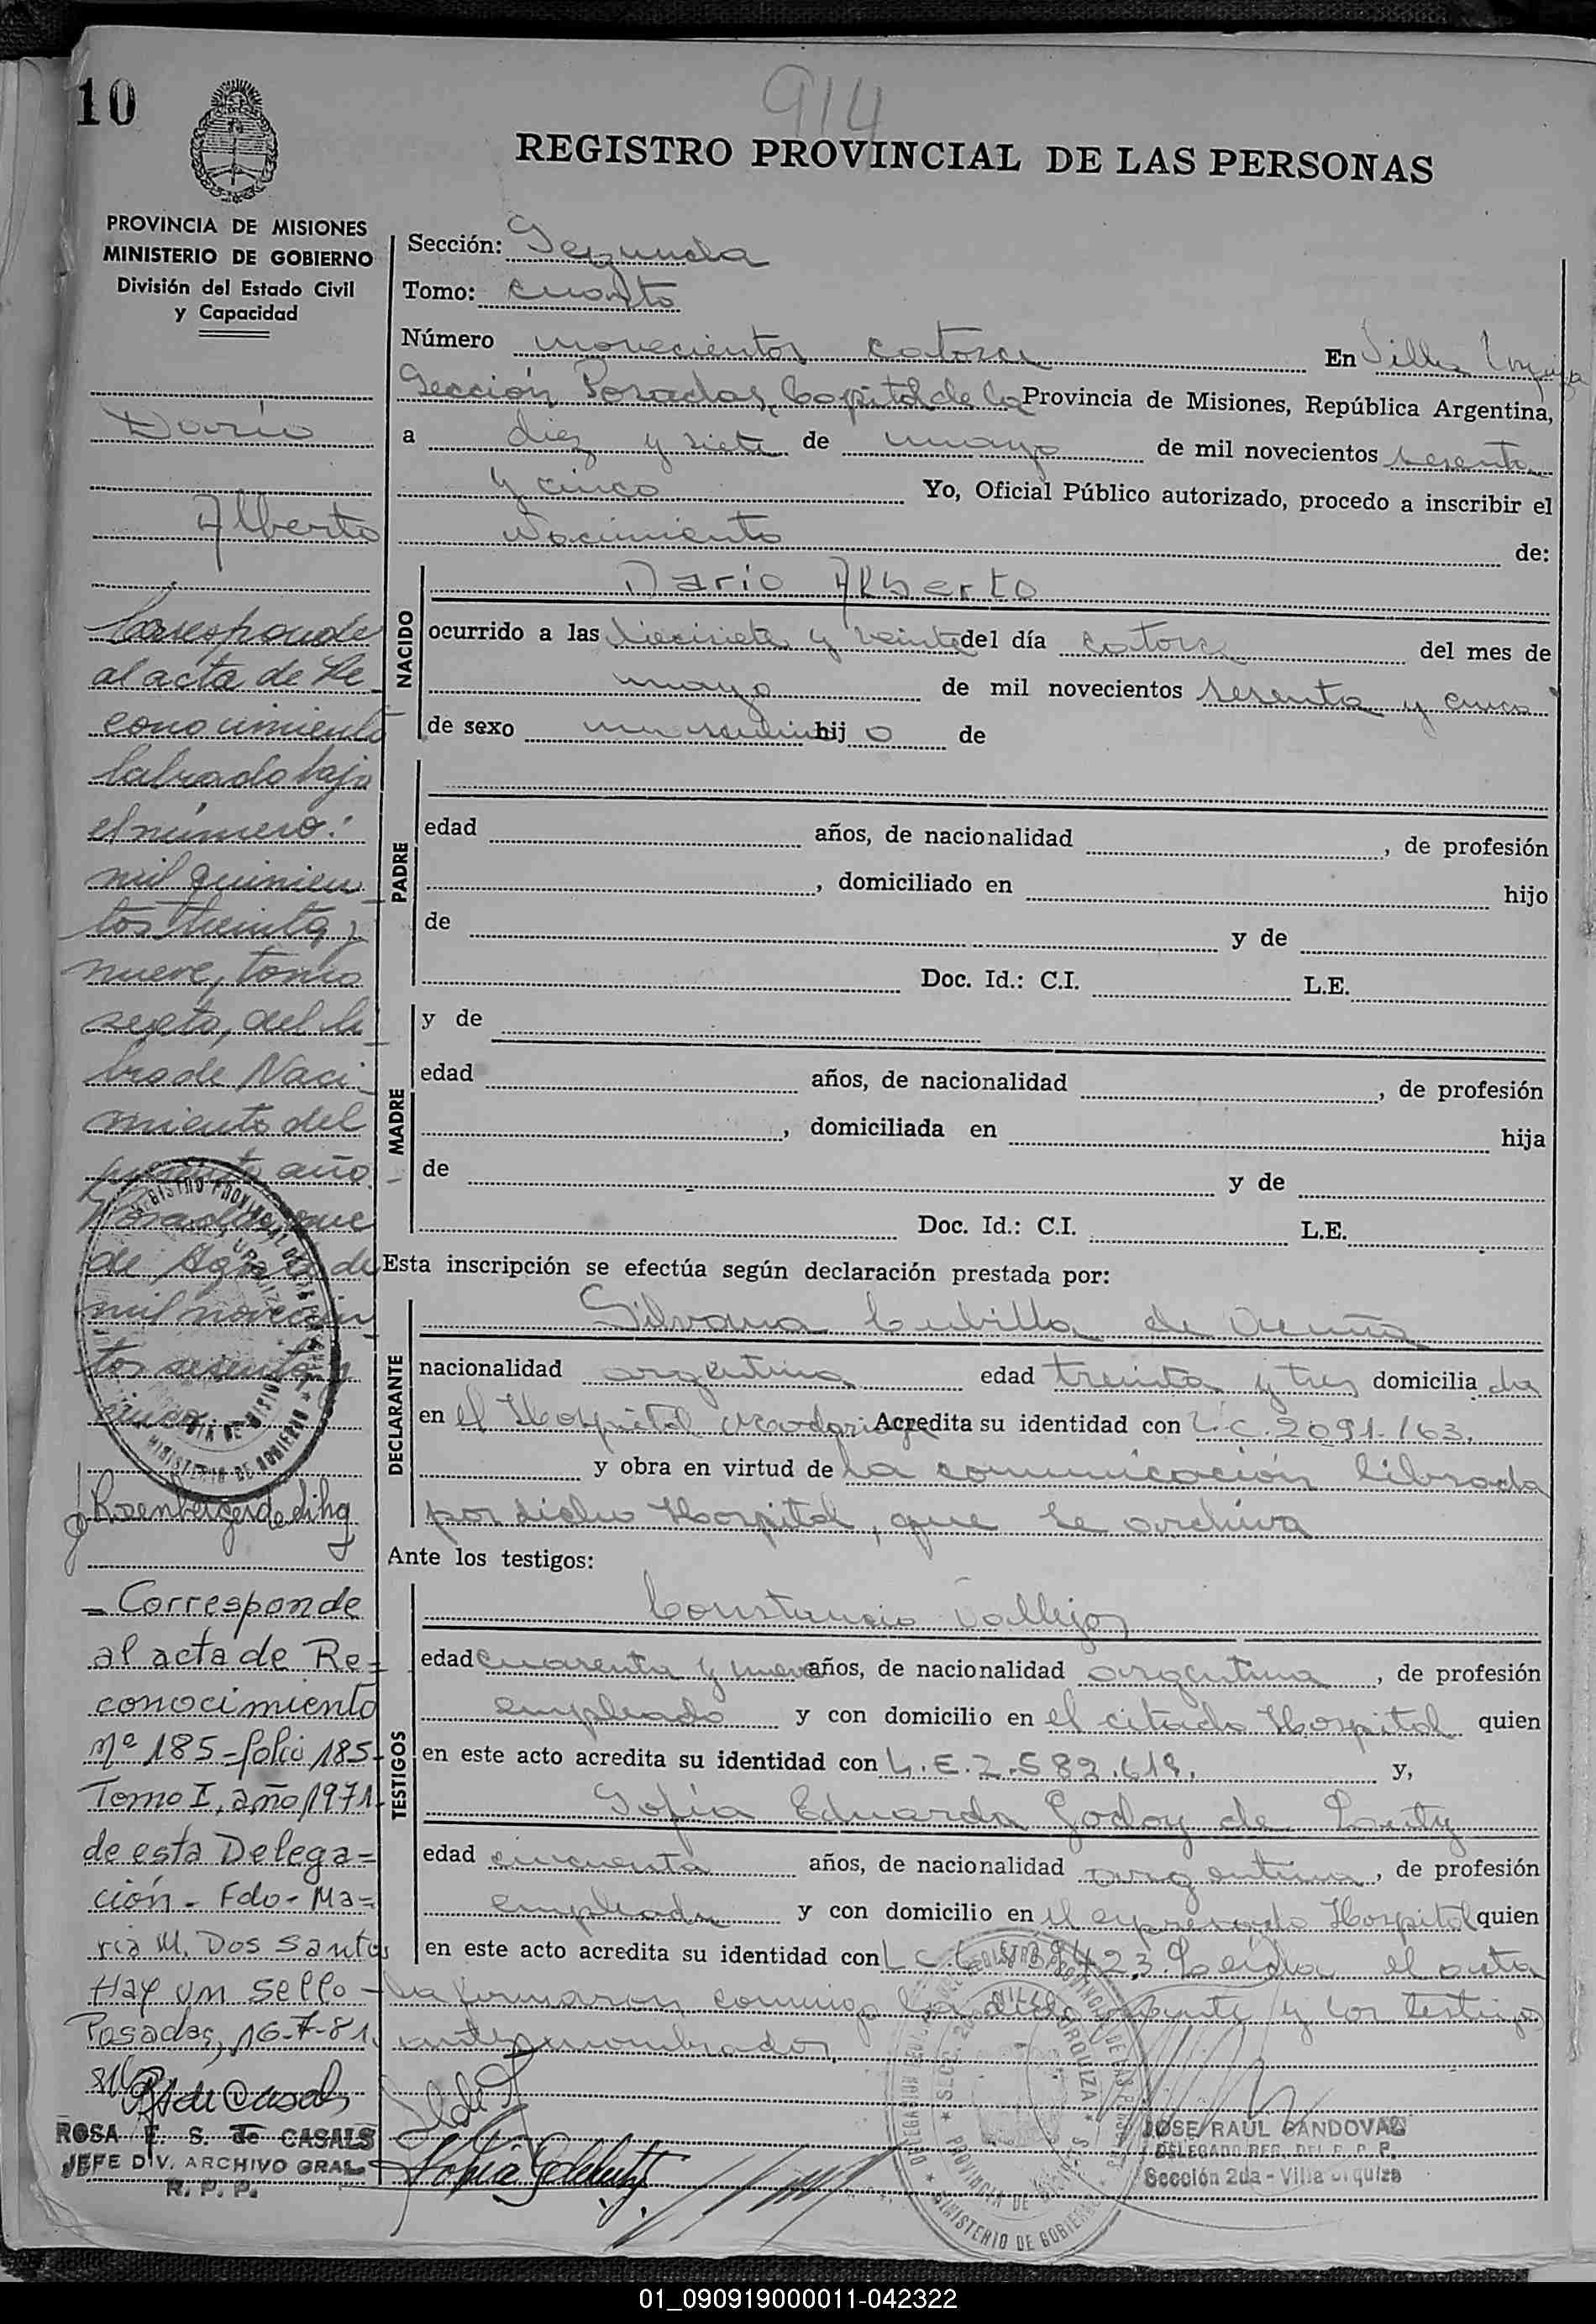 10
914
REGISTRO PROVINCIAL DE LAS PERSONAS
PROVINCIA DE MISIONES
MINISTERIO DE GOBIERNO
División del Estado Civil
y Capacidad
Darío
Alberto
Corresponde
al acta de Re
conocimiento
labrado bajo
el número:
mil quinien
tos treinta y
nueve, tomo
sexto, del li
bro de Naci
miento del
presente año.
Posadas, once
de Agosto de
mil novecien
tos sesenta y
cinco
- Corresponde
al acta de Re=
conocimiento
Nº 185 - folio 185-
Tomo I, año 1971-
de esta Delega=
ción - Fdo - Ma=
ria M. Dos Santos
Hay un sello -
Posadas, 16-7-81.
ROSA E. S. de CASALS
JEFE DIV. ARCHIVO GRAL.
R. P. P.
Sección: Segunda
Tomo: cuarto
Número novecientos catorce En Villa Urquiza
Sección Posadas, Capital de la Provincia de Misiones, República Argentina,
a diez y siete de mayo de mil novecientos sesenta
y cinco Yo, Oficial Público autorizado, procedo a inscribir el
Nacimiento de:
NACIDO
Dario Alberto
ocurrido a las diecisiete y veinte del día catorce del mes de
mayo de mil novecientos sesenta y cinco
de sexo masculino hij o de
PADRE
edad años, de nacionalidad , de profesión
, domiciliado en hijo
de y de
Doc. Id.: C.I. L.E.
MADRE
y de
edad años, de nacionalidad , de profesión
, domiciliada en hija
de y de
Doc. Id.: C.I. L.E.
Esta inscripción se efectúa según declaración prestada por:
DECLARANTE
Silvana Cubilla de
nacionalidad argentina edad treinta y tres domicilia da
en el Hospital Madariaga Acredita su identidad con L.C. 2091.163.
y obra en virtud de la comunicación librada
por dicho Hospital, que se archiva
Ante los testigos:
TESTIGOS
Constancio Vallejos
edad cuarenta y nueve años, de nacionalidad argentina, de profesión
empleado y con domicilio en el citado Hospital quien
en este acto acredita su identidad con L.E. 2.582.619. y,
Sofía Eduarda Godoy de
edad cincuenta años, de nacionalidad argentina, de profesión
empleada y con domicilio en el expresado Hospital quien
en este acto acredita su identidad con L.C. Leída el acta
la firmaron conmigo la declarante y los testigos
antes nombrados.
JOSE RAUL SANDOVAL
DELEGADO REG. DEL R. P. P.
Sección 2da - Villa Urquiza
01_090919000011-042322